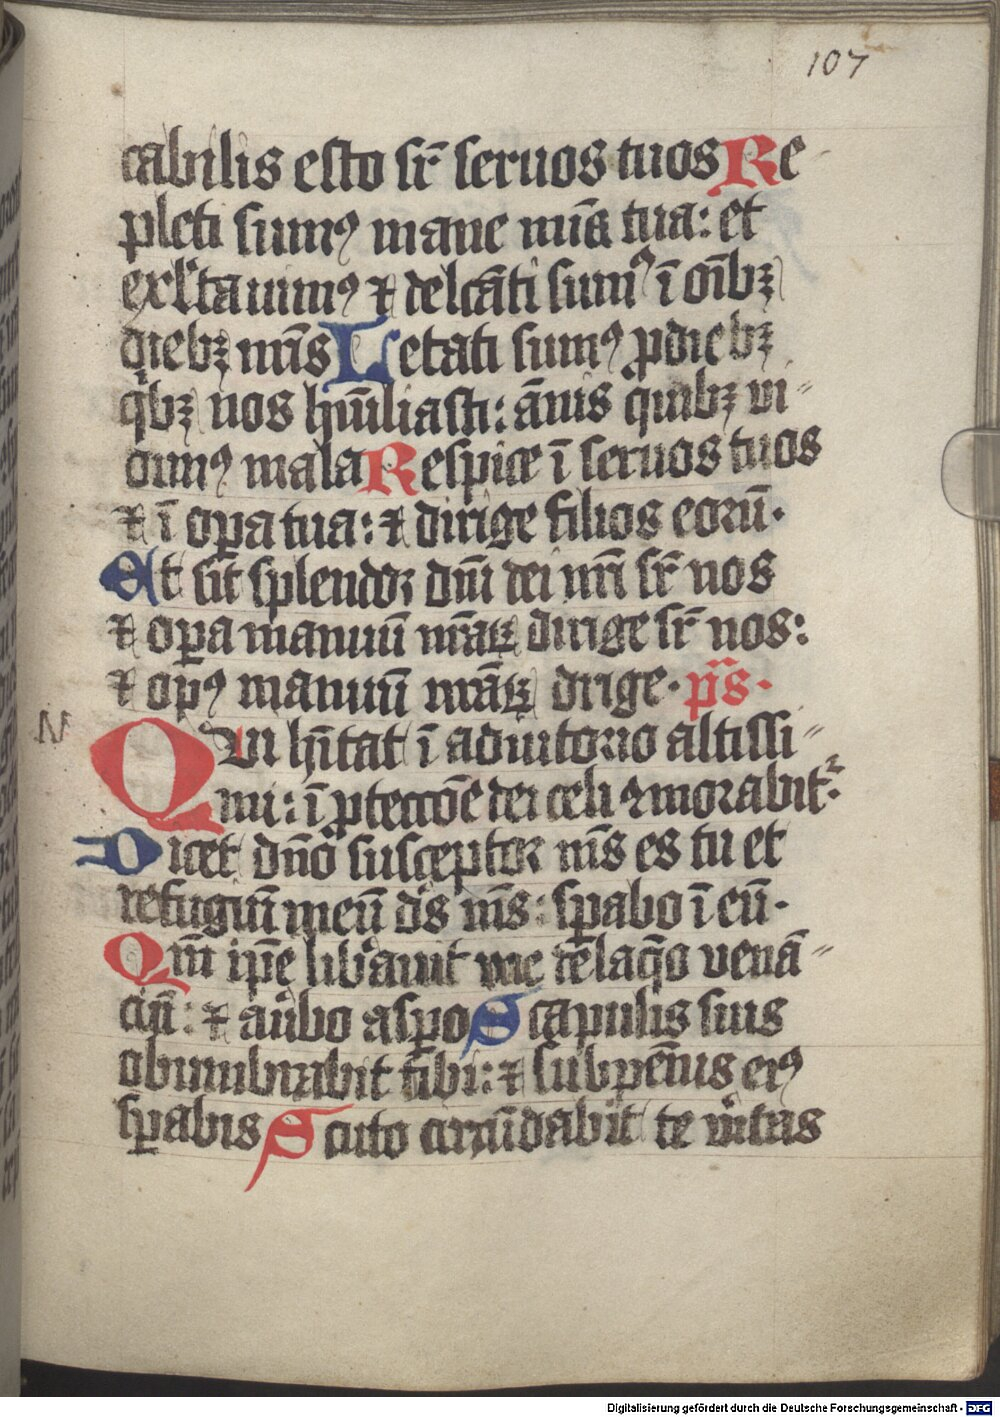 107
cabilis esto sr̄ seruos tuos Re-
pleti sumꝰ mane mīa tua: et
exl̓tauimꝰ ⁊ delcāti sumꝰ ī oībꝫ
diebꝫ nr̄is Letati sumꝰ ꝓ diebꝫ
qͥbꝫ nos hūiliasti: ānis quibꝫ ui-
dimꝰ mala Respice ī seruos tuos
⁊ ī oꝑa tua: ⁊ dirige filios eoꝛū.
Et sit splendoꝛ dn̄i dei nr̄i sr̄ nos
⁊ oꝑa manuū nr̄aꝝ dirige sr̄ nos:
⁊ opꝰ manuū nr̄aꝝ dirige. p̄s.
N
Qui hītat ī adiutoꝛio altissi-
mi: ī ꝓtectōe dei celi ꝯmoꝛabitᷣ.
Dicet dn̄o susceptoꝛ mʒ es tu et
refugiū meū dʒ mʒ: sꝑabo ī eū.
Qm̄ ip̄e lib̓auit me de laq̄o venā-
ciū: ⁊ a ūbo asꝑo Scapulis suis
obumbrabit tibi: ⁊ sub pēnis eiꝰ
sꝑabis Scuto circūdabit te v̓itas
Digitalisierung gefördert durch die Deutsche Forschungsgemeinschaft - DFG